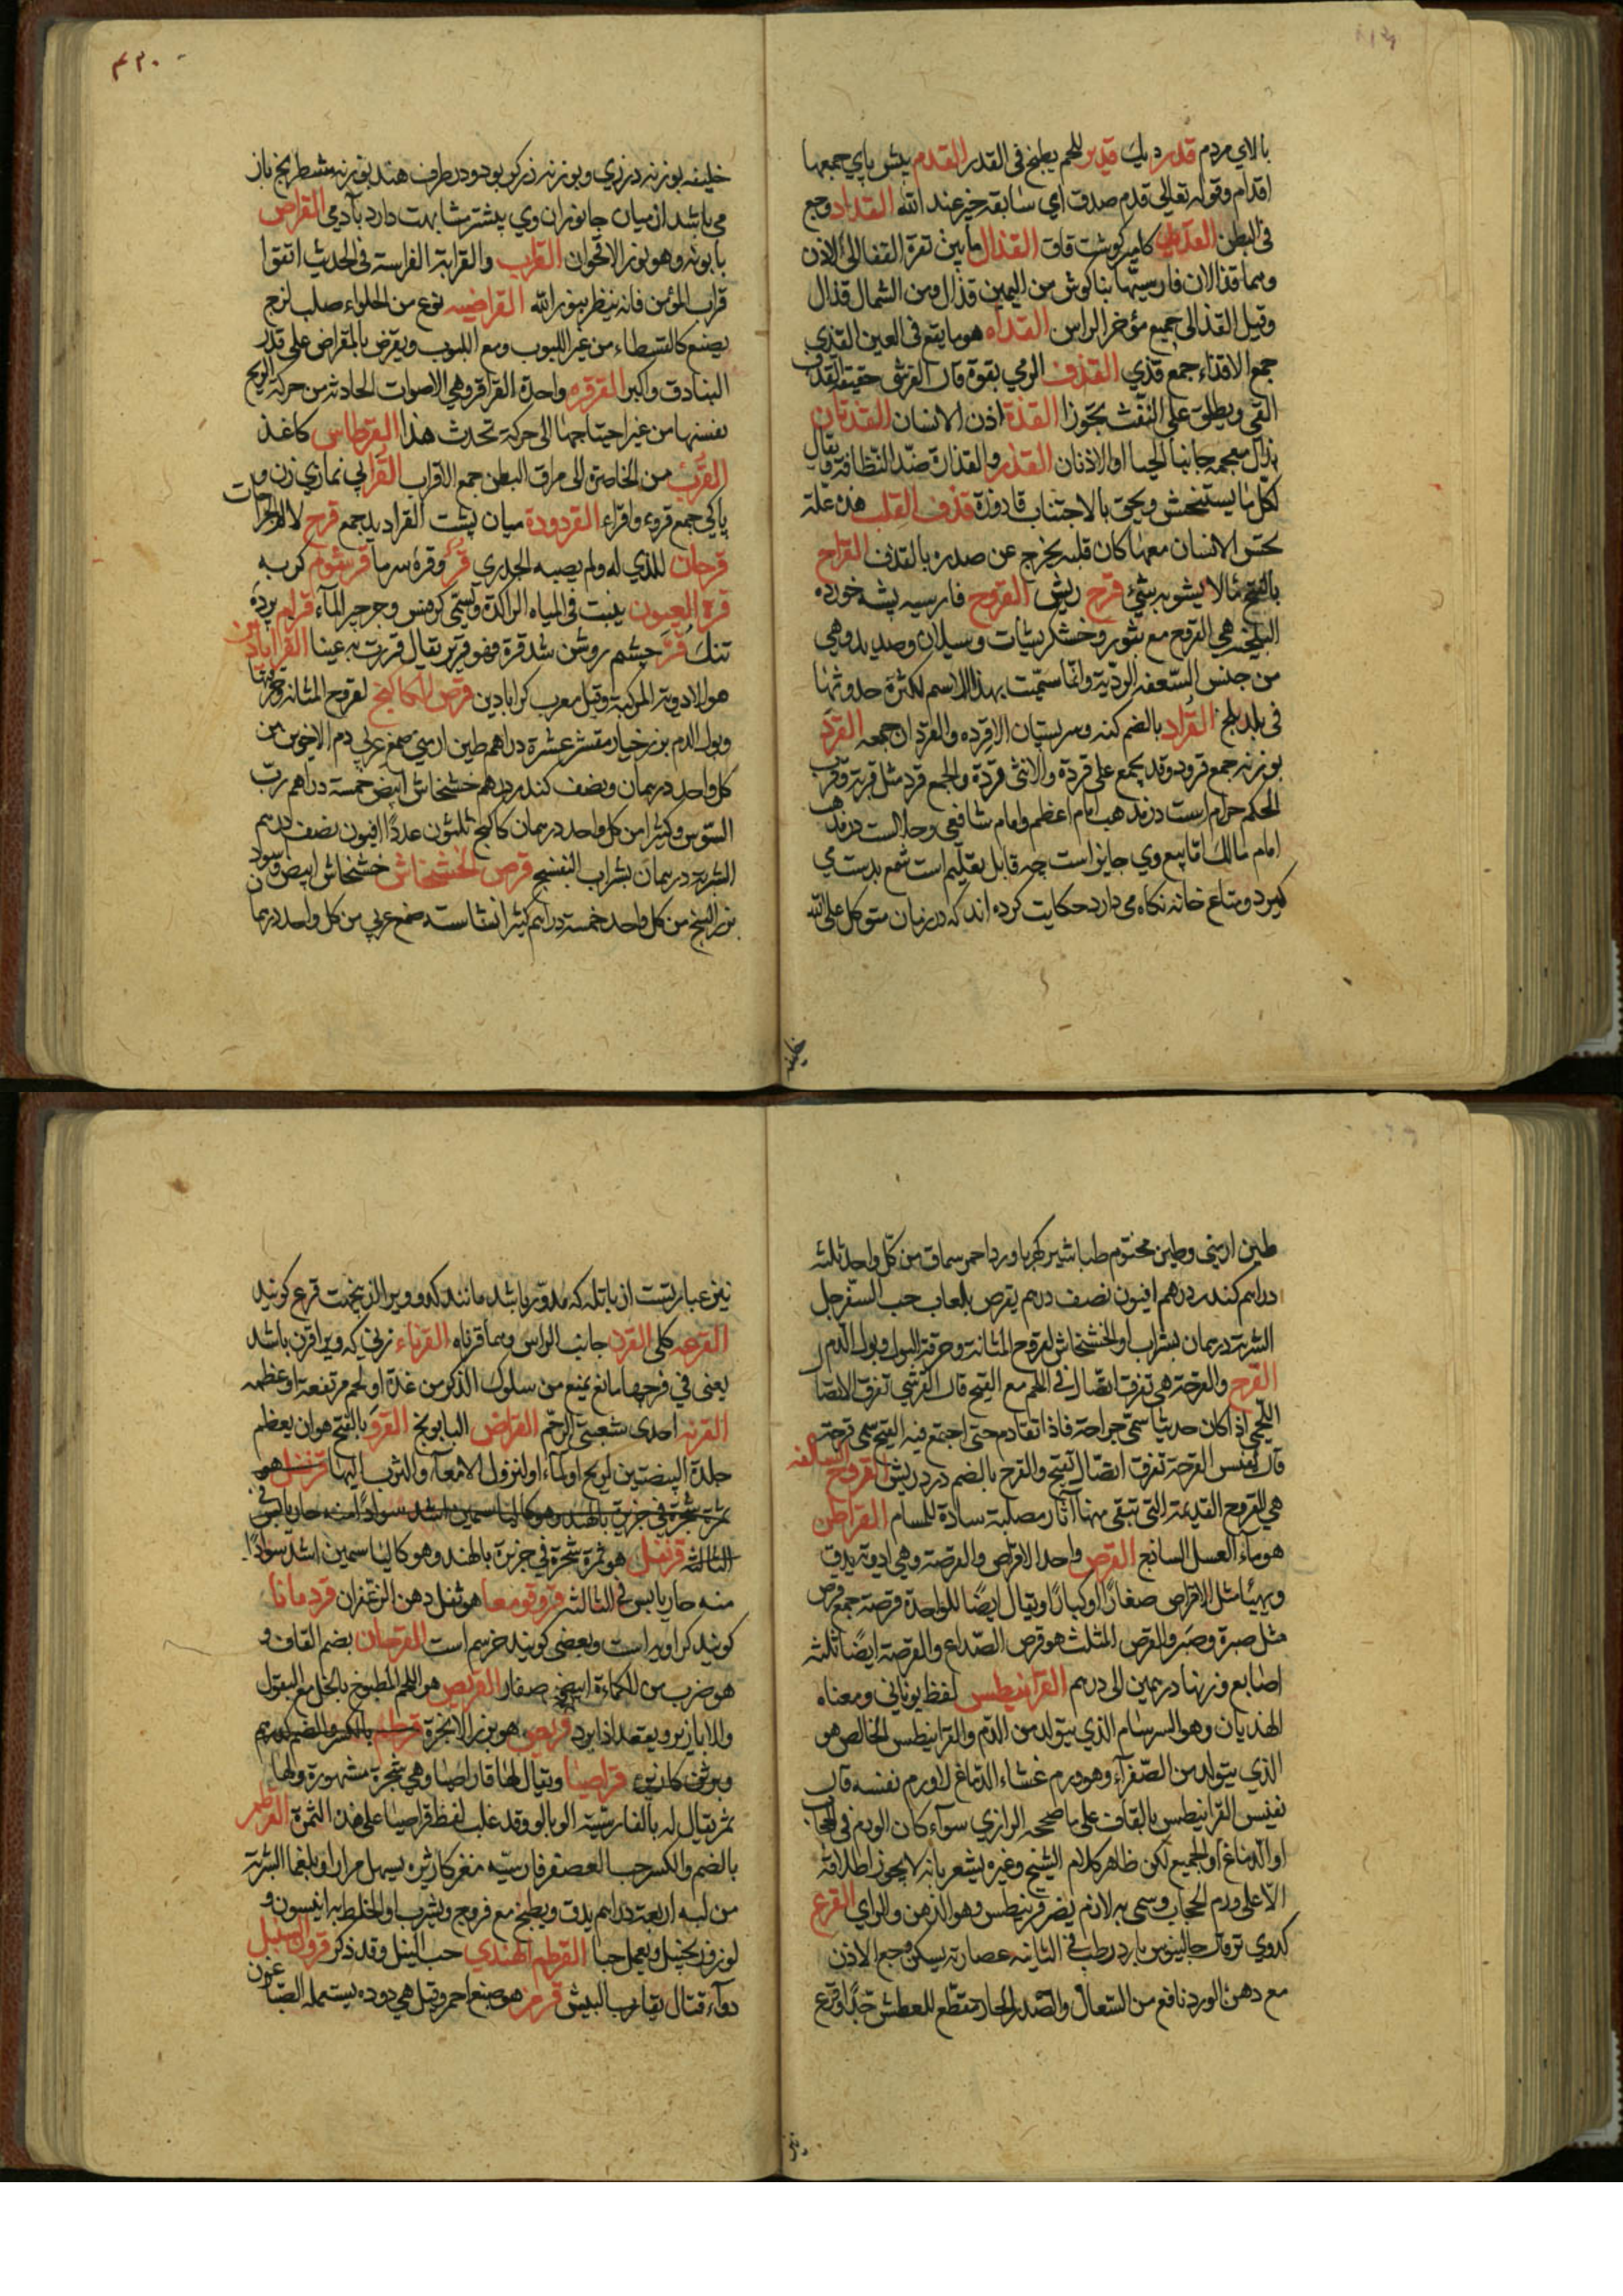 بالای مردم قدر دیك قدیر للحم یطبخ فی القدر القدم پیش پای جمعها
اقدام وقوله تعالی قدم صدق ای سابقه خیر عند الله القداد وجع
فی البطن کامه کوشت قاق القذال ما بین نقرة القفا الی الاذن
وهما قذالان فارسیتها بناکوش من الیمین قذال ومن الشمال قذال
وقیل القذالی جمیع مؤخر الراس القذاء هو ما یقع فی العین القذی
جمع الاقذاء جمع قذی القذف الرمی بقوة قال القرشی حقیقة القذف
القی ویطلق علی النفث تجوزا القذة اذن الانسان القذتان
بذال معجمه جانبا الحیا او الاذنان القذر والقذارة ضد النظافة یقال
لکل ما یستفحش ویحق بالاجتناب قاذورة قذف القلب هذه علة
یحس الانسان معها کان قلبه یخرج عن صدره بالقذف القراح
بالفتح ما لا یشوبه شئ قرح ریش القروح فارسیه پشه خورده
البلخیه هی القروح مع بثور وخشکریشات وسیلان وصدید وهی
من جنس السعفه الردیة وانما سمیت بهذا الاسم لکثرة حدوثها
فی بلد بلخ القراد بالضم کنه وسر پستان الاقرده والقردان جمعه القرد
بوزنه جمع قرود وقد یجمع علی قردة والانثی قردة والجمع قرد مثل قربة وقرب
الحکم حرام است در مذهب امام اعظم وامام شافعی وحلالست در مذهب
امام مالك اما بیع وی جایز است چه قابل تعلیم است شمع بدست می
کیرد ومتاع خانه نکاه می دارد حکایت کرده اند که در زمان متوکل علی الله
خلیفه
۴۲۰
خلیفه بوزنه درزی وبوزنه زرکر بوده ودر طرف هند بوزنه شطرنج باز
می باشد از میان جانوران وی بیشتر مشابهت دارد بآدمی القراص
بابونه وهو نور الاقحوان القراب والقرابة الفراسة فی الحدیث اتقوا
قراب المؤمن فانه ینظر بنور الله القراضیه نوع من الحلواء صلب لزج
یصنع کالقبیطاء من غیر اللبوب ومع اللبوب ویقرض بالمقراض علی قدر
البنادق واکبر القرقره واحدة القراقر وهی الاصوات الحادثه من حرکة الریح
نفسها من غیر احتیاجها الی حرکة تحدث هذا القرطاس کاغذ
القرب من الخاصرة الی مراق البطن جمع الاقراب القرابی نمازی زن و
پاکی جمع قروء واقراء القردودة میان پشت القرادید جمع قرح لا
قرحان للذی له ولم یصیبه الجدری قر وقرة سرما قرشوم کربه
قرة العیون ینبت فی المیاه الراکدة وتسمی کرفس وجرجیر المآء قرام پردة
تنك قر چشم روشن شد قرة فهو قریر یقال قررت به عینا القراباذین
هو الادویة المرکبة وقیل معرب کرابادین قرص الکاکنج لقروح المثانه وحرقتها
وبول الدم بزر خیار مقشر عشرة دراهم طین ارمنی صمغ عربی دم الاخوین من
کل واحد درهمان ونصف کندر درهم خشخاش ابیض خمسة دراهم رب
السوس وکثیرا من کل واحد درهمان کاکنج ثلثون عددا افیون نصف درهم
الشربة درهمان بشراب البنفسج قرص الخشخاش خشخاش ابیض واسود
بزر البنج من کل واحد خمسة دراهم کثیرا نشاسته صمغ عربی من کل واحد درهما
طین ارمنی وطین مختوم طباشیر کهربا ورد احمر سماق من کل واحد ثلثه
دراهم کندر درهم افیون نصف درهم یقرص بلعاب حب السفرجل
الشربة درهمان بشراب او الخشخاش لقروح المثانة وحرقة البول وبول الدم
القرح والقرحة هی تفرق اتصال فی اللحم مع القیح قال القرشی تفرق الاتصا
اللحمی اذا کان حدیثا سمی جراحة فاذا تقادم حتی اجتمع فیه القیح سمی قرحة
قال نفیس القرحة تفرق اتصال تقیح والقرح بالضم درد ریش القروح السالفه
هی القروح القدیمة التی تبقی منها آثار مصلبة سادة للمسام القراطن
هو ماء العسل الساذج القرص واحد الاقراص والقرصة وهی ادویة یدق
ویهیأ مثل الاقراص صغارا او کبارا ویقال ایضا للواحدة قرصة جمع قرص
مثل صبرة وصبر والقرص المثلث هو قرص الصداع والقرصة ایضا ثلثه
اصابع وزنها درهمین الی درهم القرانیطس لفظ یونانی ومعناه
الهذیان وهو السرسام الذی یتولد من الدم والقرانیطس الخالص هو
الذی یتولد من الصفرآء وهو ورم غشاء الدماغ لا ورم نفسه قال
نفیس القرانیطس بالقاف علی ما صححه الرازی سوآء کان الورم فی الحجا
او الدماغ او الجمیع لکن ظاهر کلام الشیخ وغیره یشعر بانه لا یجوز اطلاقه
الا علی ورم الحجاب وسمی به لانه یضر قرنیطس وهو الذهن والرای القرع
کدوی تر قال جالینوس بارد رطب فی الثانیه عصارته یسکن وجع الاذن
مع دهن الورد نافع من السعال والصدر الحار مقطع للعطش جدا وقرع
نیز
نیز عبارتست از باتله که مدور باشد مانند کدو وبر الذ بیخت قرع کویند
القرعه کلی القرن جانب الراس وهما قرناه القرناء زنی که ویرا قرن باشد
یعنی فی فرجها مانع یمنع من سلوك الذکر من غدة او لحم مرتفعة او عظمه
القرنه احدی شعبتی الرحم القراض البابونج القرو بالفتح هو ان یعظم
جلدة البیضتین لریح او ماء او لنزول الامعآء والثرب الیها قرنفل هو
ثمرة شجرة فی جزیرة بالهند وهو کالیاسمین اشد سوادا منه حار یابس فی
الثالثه قرنفل هو ثمرة شجرة فی جزیرة بالهند وهو کالیاسمین اشد سوادا
منه حار یابس فی الثالثه قروقومعما هو ثفل دهن الزعفران قردمانا
کویند کراویه است وبعضی کویند خرسم است القرحان بضم القاف و
هو ضرب من الکماءة ابیض صغار القریص هو اللحم المطبوخ بالخل مع البقول
والابازیر ویعقد اذا برد قریص هو بزر الانجرة قرطم بالکسر والضم
قراصیا ویقال لها قاراصیا وهی شجرة مشهورة ولها
ثمر یقال له بالفارسیة الوبالو وقد غلب لفظ قراصیا علی هذه الثمرة القرطم
بالضم والکسر حب العصفر فارسیه مغز کازیره یسهل مرارا وبلغما الشربة
من لبه اربعة دراهم یدق ویطبخ مع فروج ویشرب او الخلط به انیسون و
لوز وزنجبیل ویعمل حبا القرطم الهندی حب النیل وقد ذکر قرون السنبل
دوآء قتال یقارب البیش قرمز هو صبغ احمر وقیل هی دوده یستعمله الصباغون